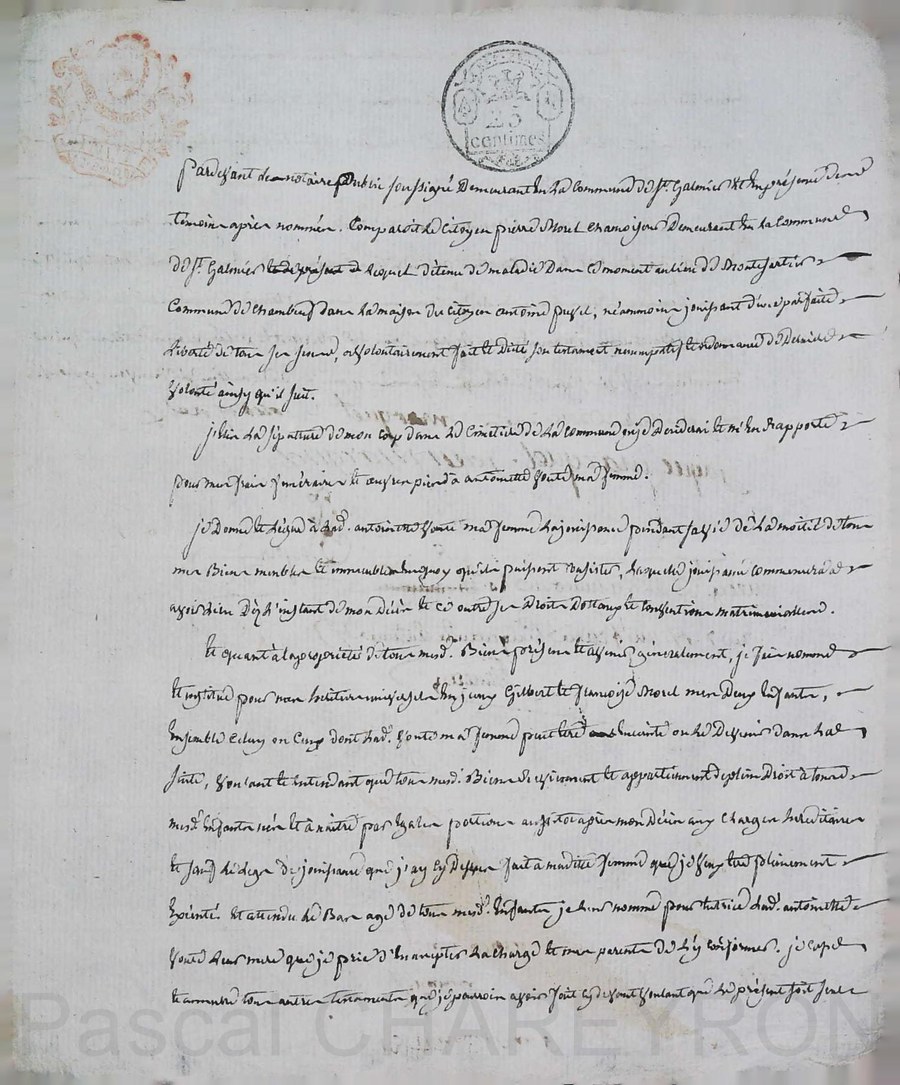 25
centimes
Pardevant le notaire Public soussigné Demeurant En La Commune de St. Galmier Et En présence des
témoins après nommés. Comparoit Le Citoyen pierre Morel Chamoiseur Demeurant En La Commune
de St. Galmier lequel détenu de maladie Dans ce moment au lieu de
Commune de Chambœuf dans La maison du Citoyen antoine, néanmoins jouissant d'une parfaite
Liberté de tous ses sens, a volontairement fait Et Dicté son testament nuncupatif Et ordonnance de Derniere
Volonté ainsy qu'il suit.
La sépulture de mon corps dans Le Cimetière de La Commune ou je Décéderai Et m'En Rapporte
pour mes frais funéraires Et œuvres pies à antoinette ma femme.
Je Donne Et Lègue à Lad. antoinette ma femme La jouissance pendant sa vie de La moitié de tous
mes Biens meubles Et immeubles En quoy qu'ils puissent Consister, Laquelle jouissance commencera a
avoir Lieu Dès L'instant de mon Décès Et ce outre ses Droits Dotaux Et Conventions matrimonialles.
Et quant à la propriété de tous mesd. Biens présens Et avenir généralement, je fais nomme
Et institue pour mes héritiers universels Gilbert Et françoise Morel mes Deux Enfants,
Ensemble Celuy ou Ceux dont Lad. ma femme peut Etre Enceinte ou Le Devenir Dans La
suite, voulant Et Entendant que tous mesd. Biens Et appartiennent de plein Droit à tous
mesd. Enfants nés Et à naître par Egales portions aussitot après mon Décès aux Charges héréditaires
Et sauf Le Legs de jouissance que j'ay Cy Dessus fait a madite femme que je veux Etre pleinement
Exécuté. Et attendu Le Bas age de tous mesd. Enfants je Leur nomme pour tutrice Lad. antoinette
Leur mere que je prie d'En accepter La charge Et mes parents de s'y conformer. je casse
Et annulle tous autres testaments que je pourrois avoir fait Cy devant voulant que Le présent soit seul
Pascal CHAREYRON